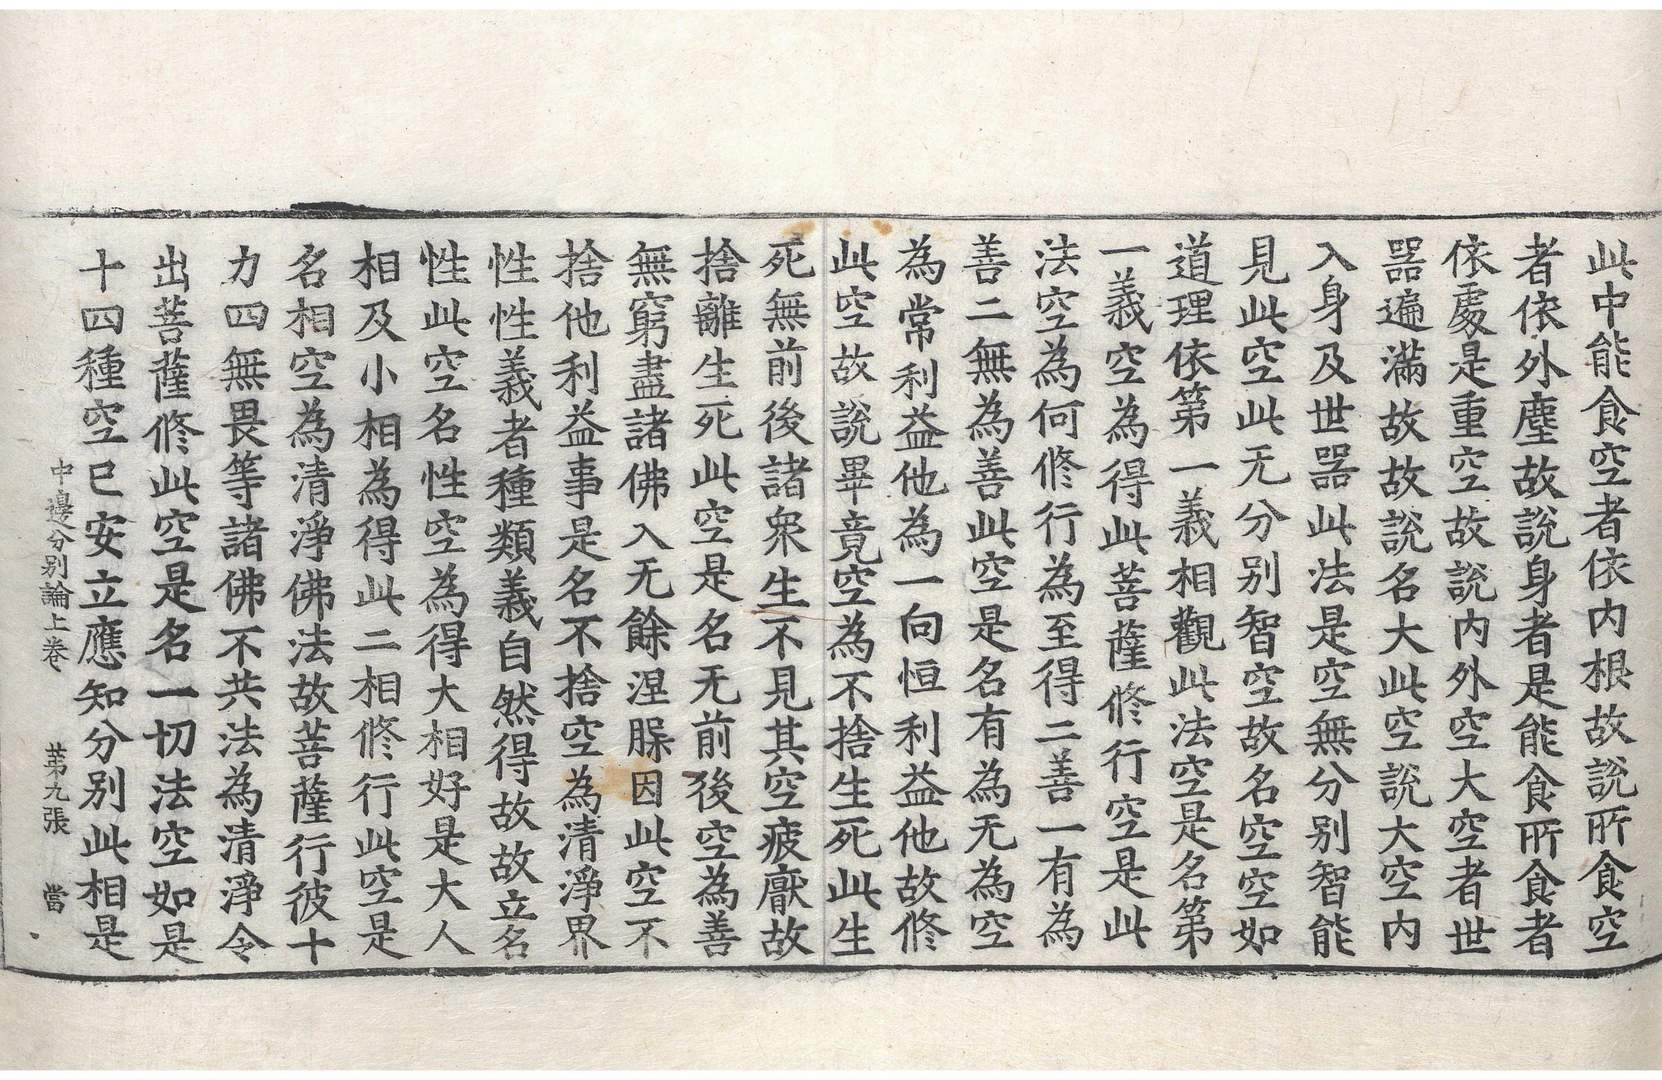 此中能食空者依內根故說所食空
者依外塵故說身者是能食所食者
依處是重空故說內外空大空者世
器遍滿故故說名大此空說大空內
入身及世器此法是空無分别智能
見此空此无分別智空故名空空如
道理依第一義相觀此法空是名第
一義空為得此菩薩修行空是此
法空為何修行為至得二善一有為
善二無為善此空是名有為无為空
為常利益他為一向恒利益他故修
此空故說畢竟空為不捨生死此生
死無前後諸眾生不見其空疲厭故
捨離生死此空是名无前後空為善
無窮盡諸佛入无餘涅槃因此空不
捨他利益事是名不捨空為清淨界
性性義者種類義自然得故故立名
性此空名性空為得大相好是大人
相及小相為得此二相修行此空是
名相空為清淨佛法故菩薩行彼十
力四無畏等諸佛不共法為清淨令
出菩薩修此空是名一切法空如是
十四種空已安立應知分別此相是
中邊分別論上卷 第九張 當